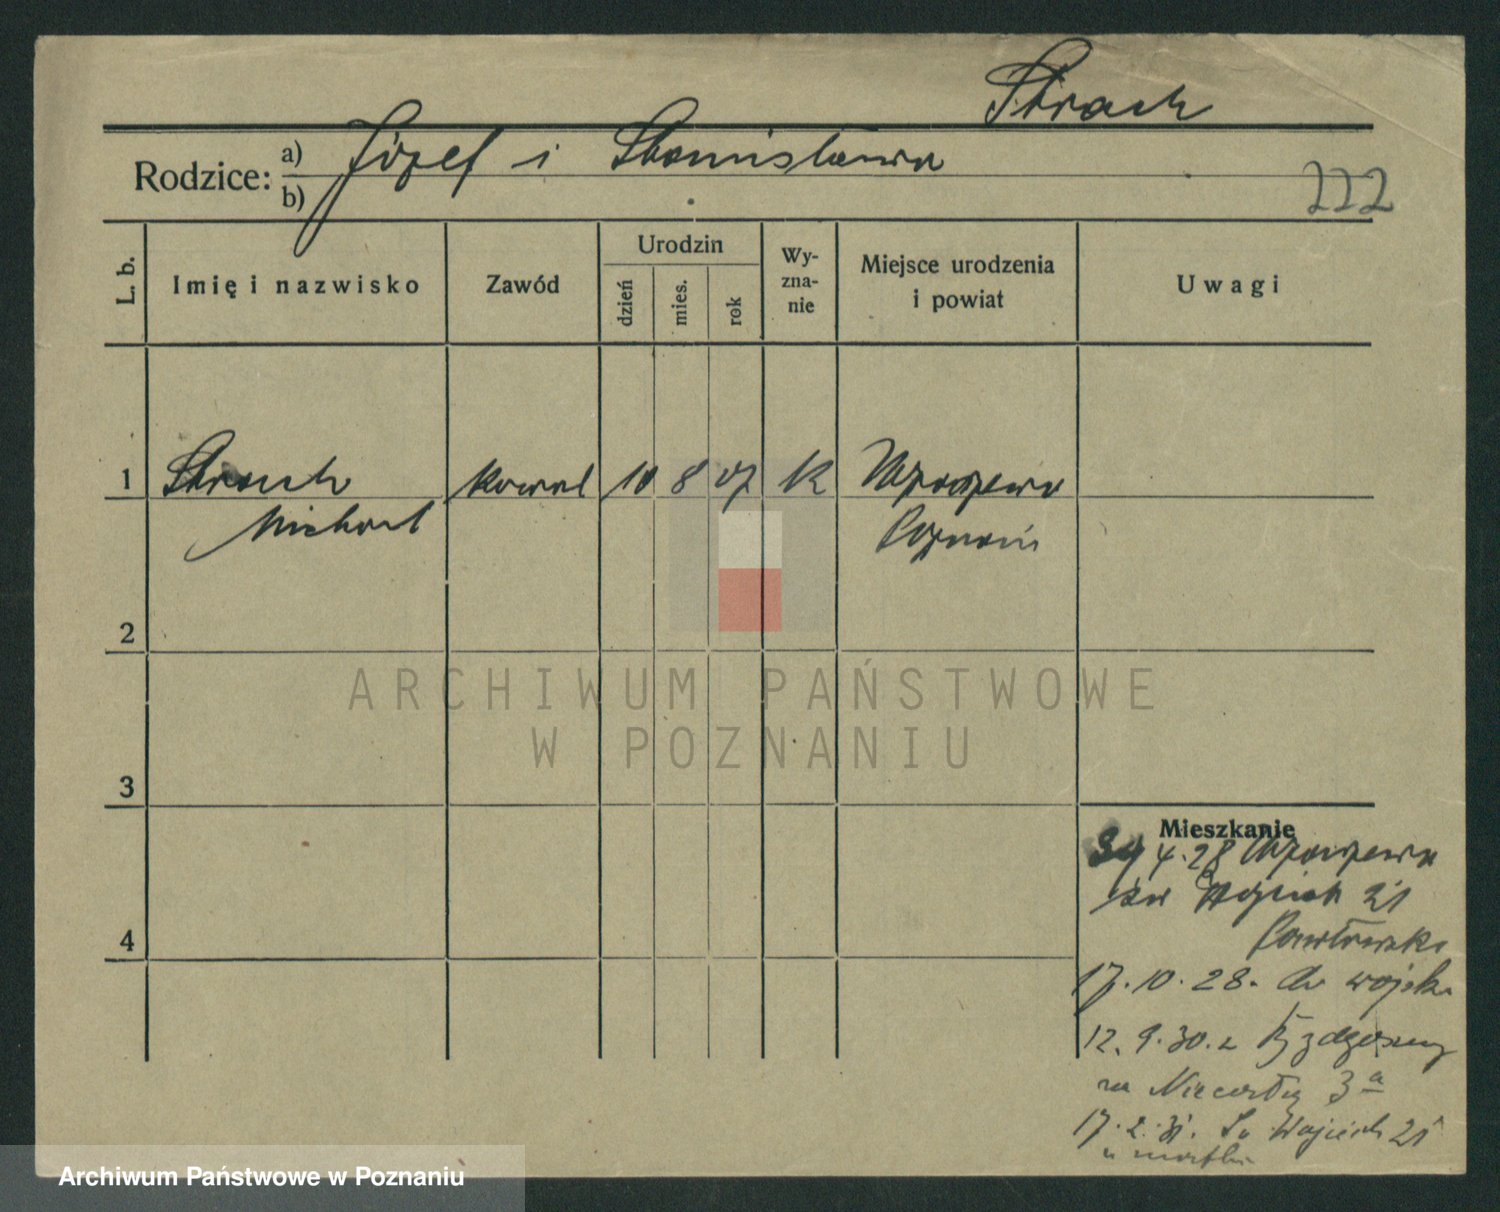 Strach
Rodzice: a) Józef i Stanisława
b)
222
L. b.
Imię i nazwisko
Zawód
Urodzin
dzień
mies.
rok
Wy-
zna-
nie
Miejsce urodzenia
i powiat
Uwagi
1 Strach kowal 10 8 07 K
Michał Poznań
2
3
4
Mieszkanie
4.28
św Wojciech 21
Pawłowska
17.10.28. do wojska
12.9.30. z Bydgoszczy
na 3a
17.2.31. Św Wojciech 21
u matki
ARCHIWUM PAŃSTWOWE
W POZNANIU
Archiwum Państwowe w Poznaniu